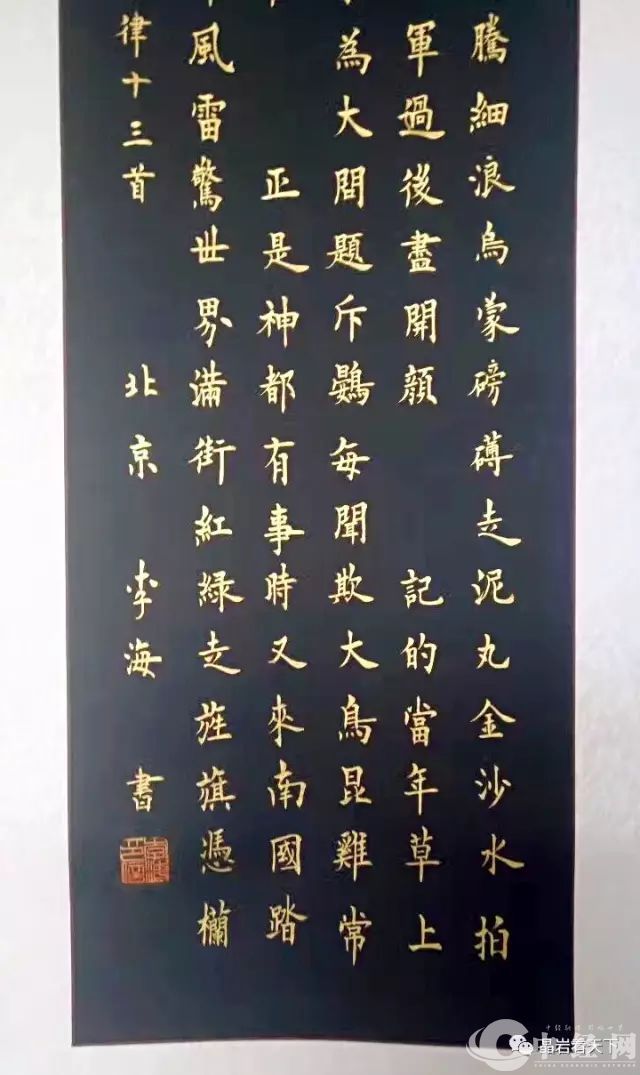 騰細浪烏蒙磅礴走泥丸金沙水拍
軍過後盡開顔 記的當年草上
為大問題斥鷃每聞欺大鳥昆雞常
正是神都有事時又來南國踏
風雷驚世界滿街紅綠走旌旗憑欄
律十三首 北京 李海 書
中经网
晶岩看天下